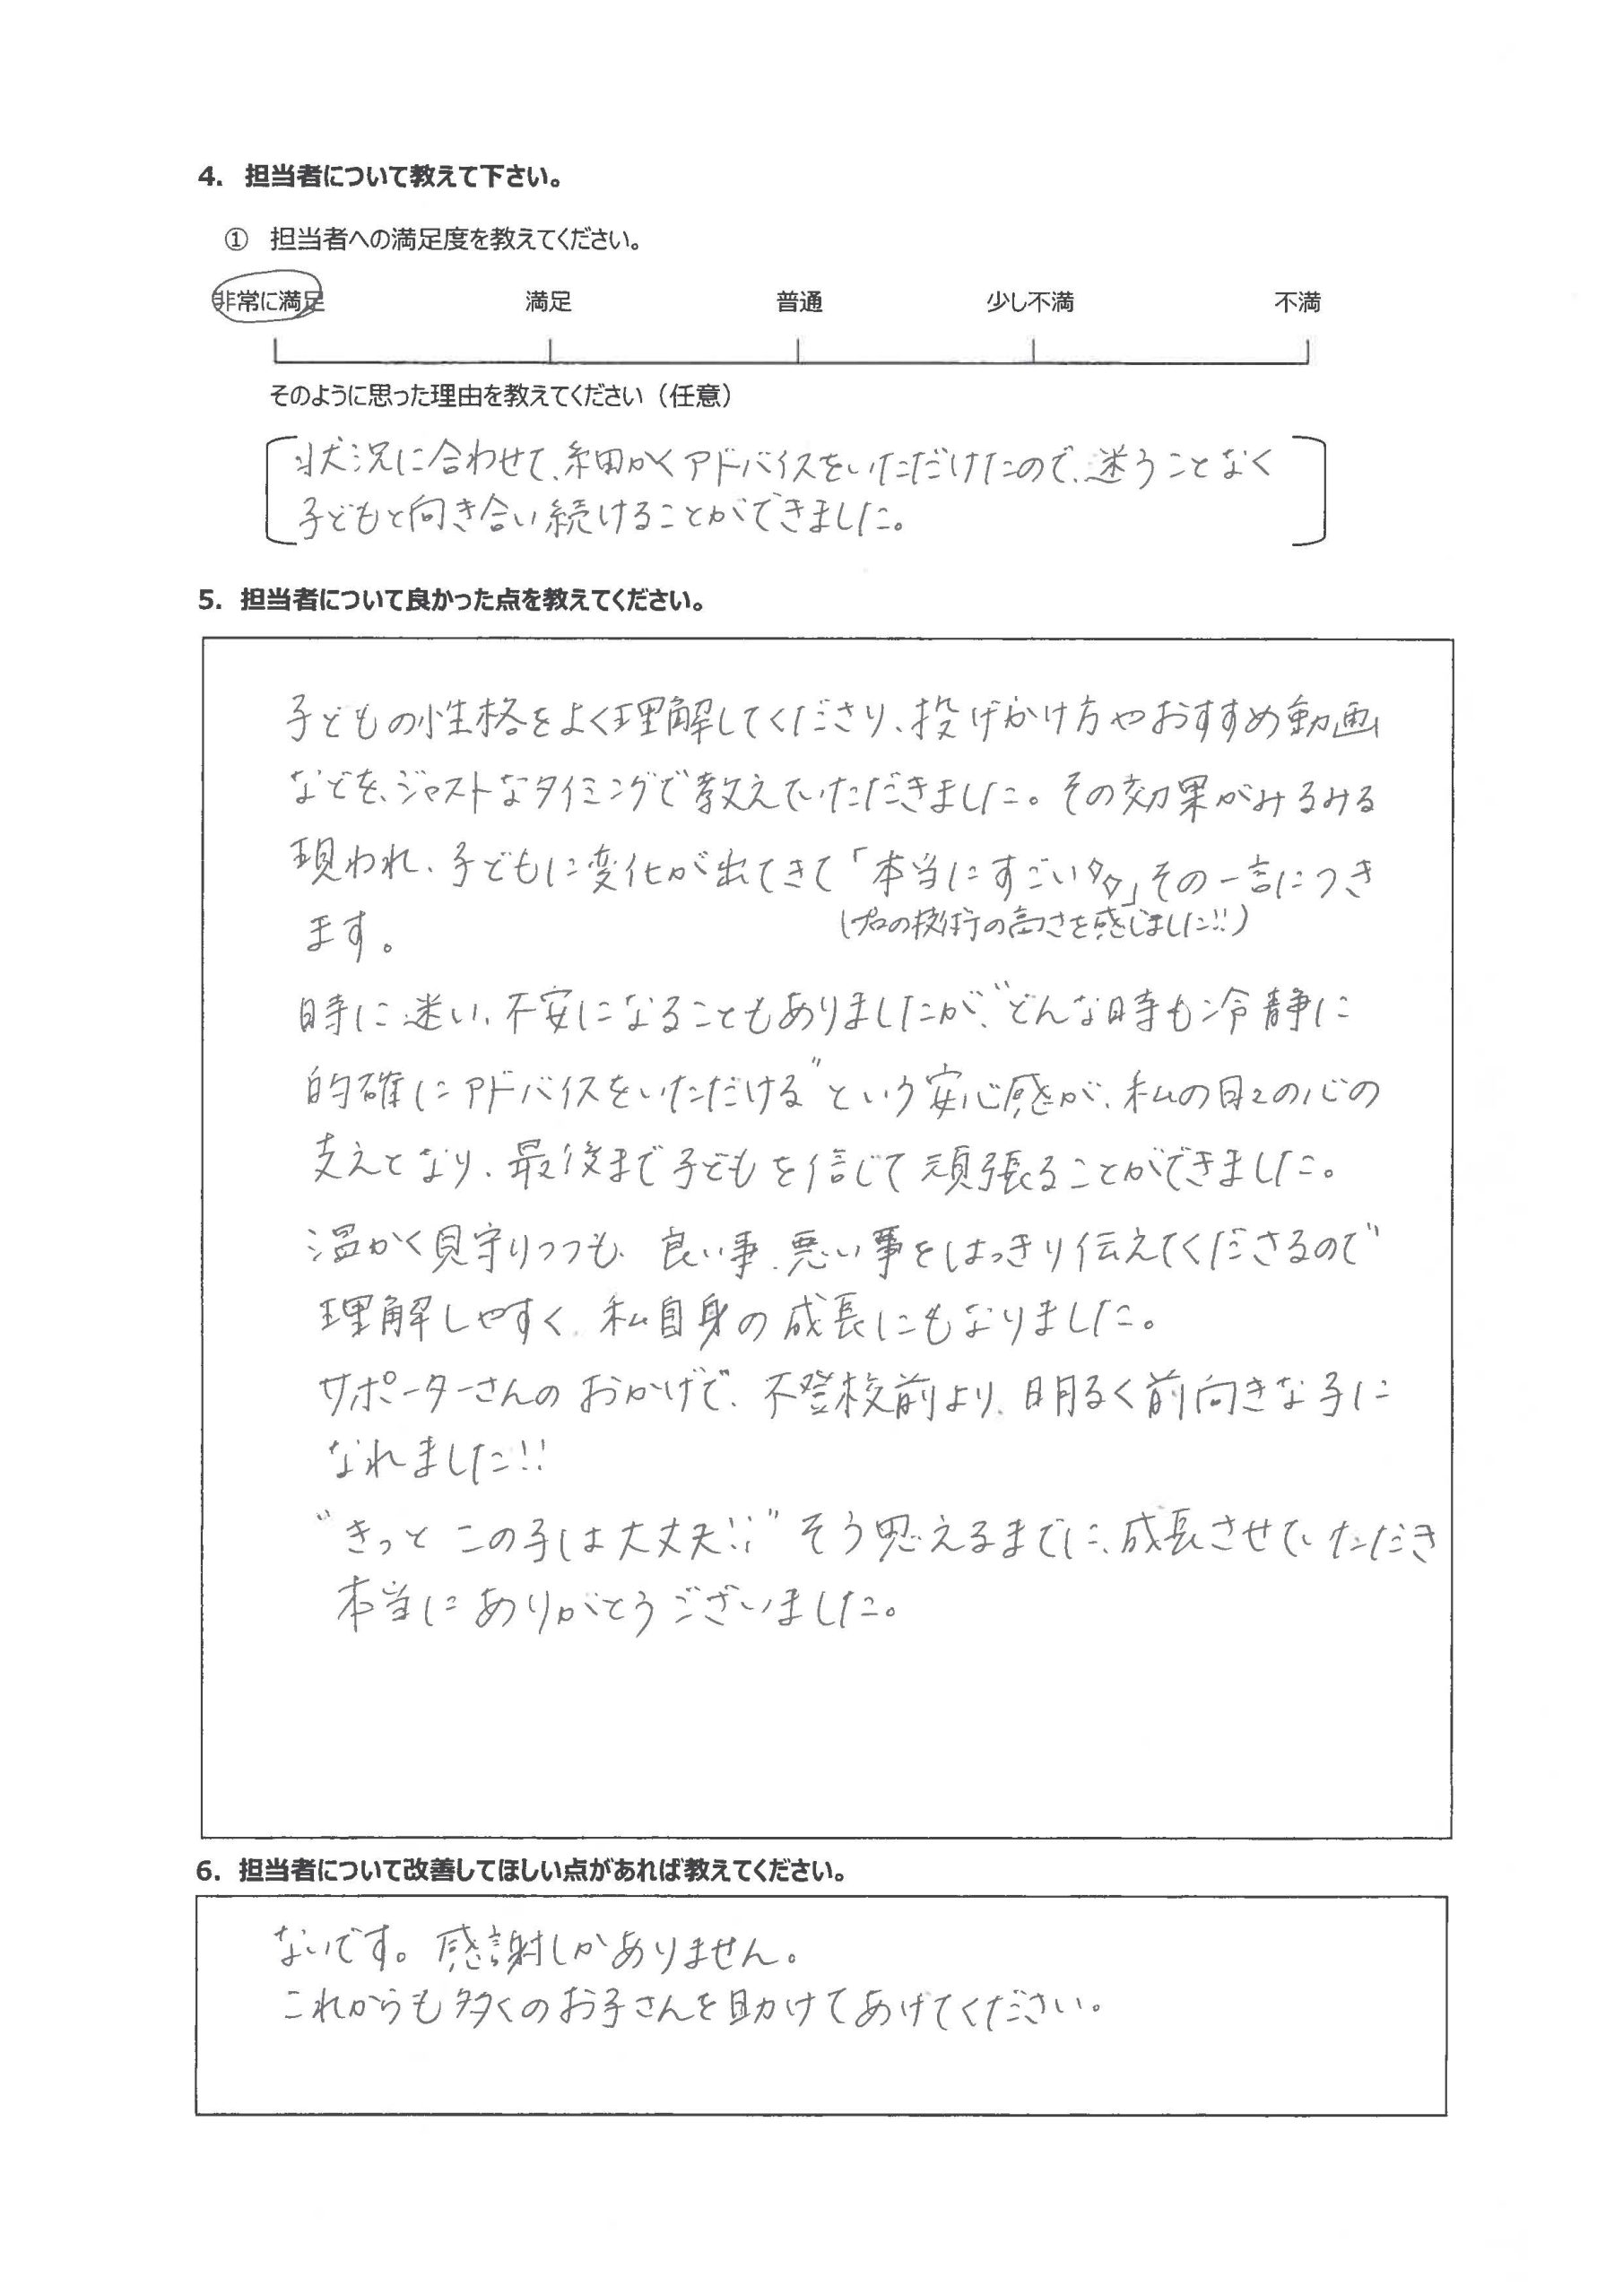 4. 担当者について教えて下さい。
① 担当者への満足度を教えてください。
非常に満足 満足 普通 少し不満 不満
そのように思った理由を教えてください（任意）
状況に合わせて、細かくアドバイスをいただけたので、迷うことなく
子どもと向き合い続けることができました。
5. 担当者について良かった点を教えてください。
子どもの性格をよく理解してくださり、投げかけ方やおすすめ動画
などを、ジャストなタイミングで教えていただきました。その効果がみるみる
現われ、子どもに変化が出てきて「本当にすごい!!」その一言につき
ます。
(プロの技術の高さを感じました!!)
時に迷い、不安になることもありましたが、"どんな時も冷静に
的確にアドバイスをいただける"という安心感が、私の日々の心の
支えとなり、最後まで子どもを信じて頑張ることができました。
温かく見守りつつも、良い事、悪い事をはっきり伝えてくださるので
理解しやすく、私自身の成長にもなりました。
サポーターさんのおかげで、不登校前より、明るく前向きな子に
なれました!!
"きっとこの子は大丈夫!!"そう思えるまでに、成長させていただき
本当にありがとうございました。
6. 担当者について改善してほしい点があれば教えてください。
ないです。感謝しかありません。
これからも多くのお子さんを助けてあげてください。